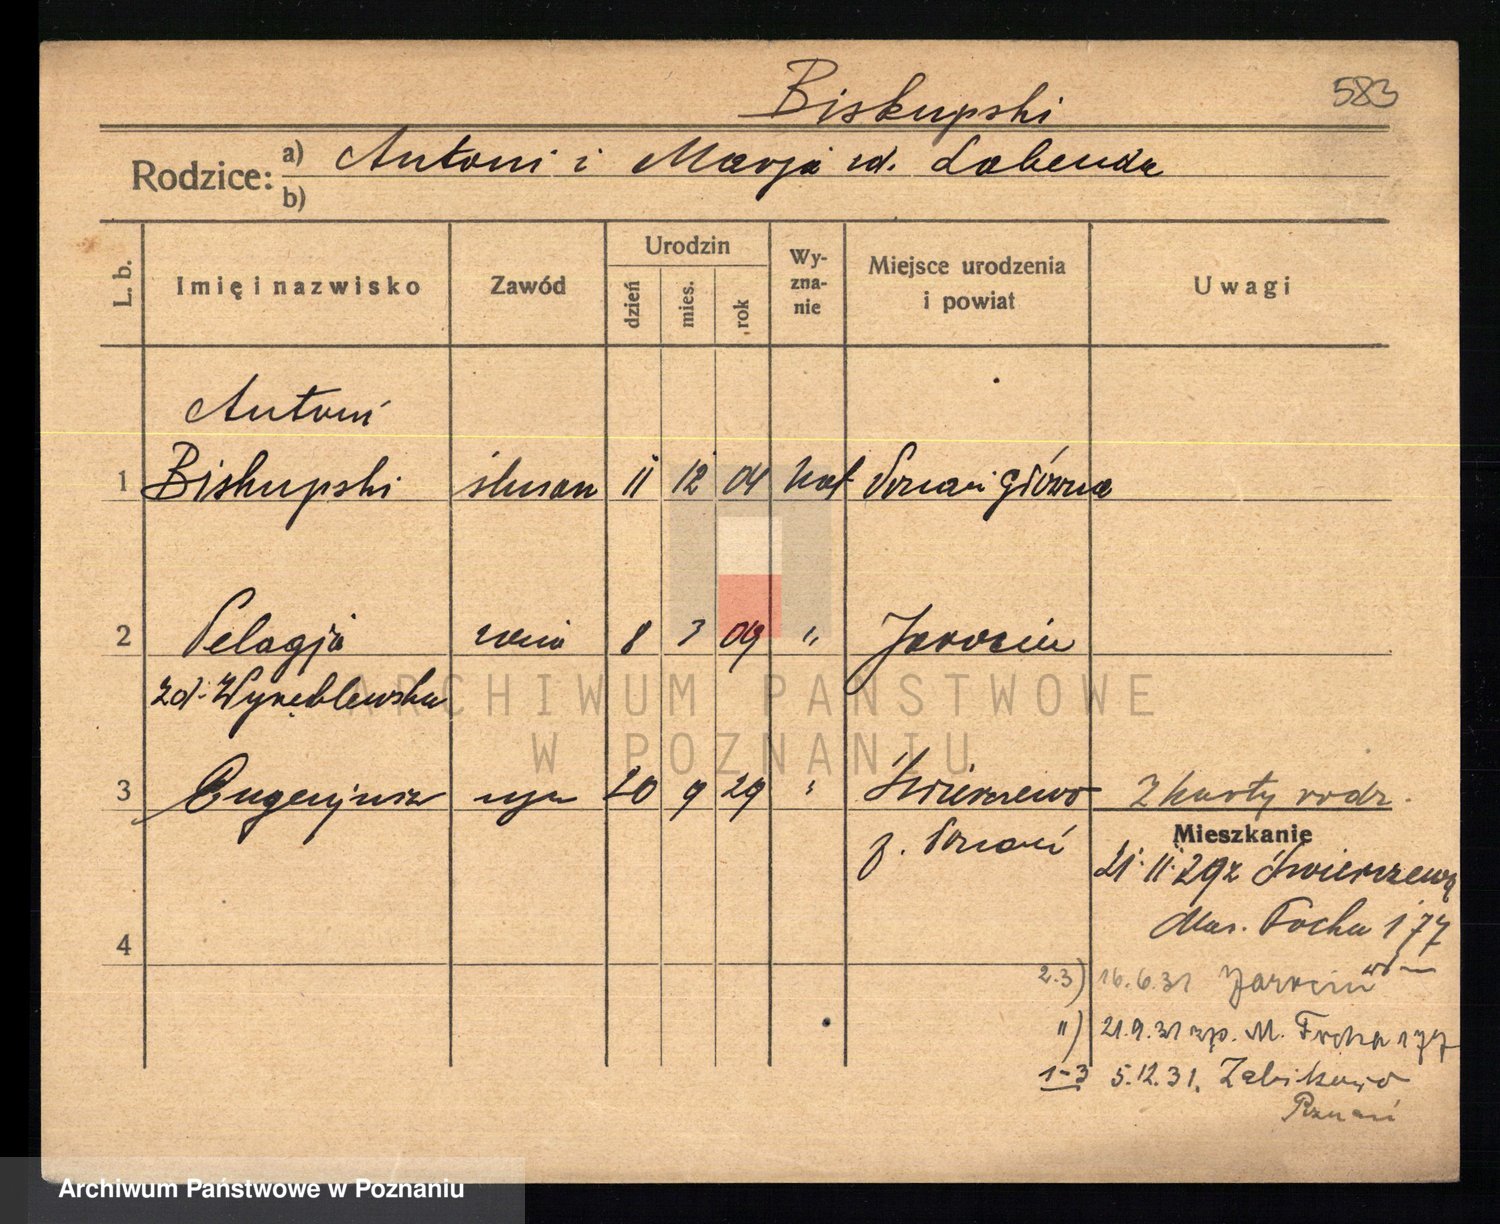 Biskupski
583
Rodzice: a) Antoni i Marja zd. Labenda
b)
L. b. Imię i nazwisko Zawód Urodzin dzień mies. rok Wy-zna-nie Miejsce urodzenia i powiat Uwagi
Antoni
1 Biskupski ślusarz 11 12 04 kat Poznań Główna
2 Pelagja żona 8 3 09 " Jarocin
zd. Wyręblewska
3 Eugenjusz syn 20 9 29 " Świerczewo Z karty rodz.
p. Poznań
Mieszkanie
21.11.29 z Świerczewa
Mar. Focha 177
4
2.3) 16.6.31 Jarocin
") 21.9.31 zp. M. Focha 177
1-3 5.12.31. Żabikowo
Poznań
ARCHIWUM PAŃSTWOWE
W POZNANIU
Archiwum Państwowe w Poznaniu